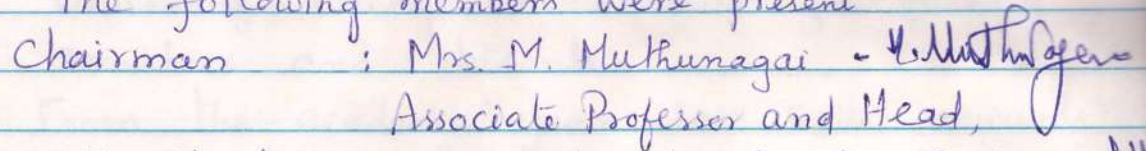 The following members were present
Chairman : Mrs. M. Muthunagai -
Associate Professor and Head,